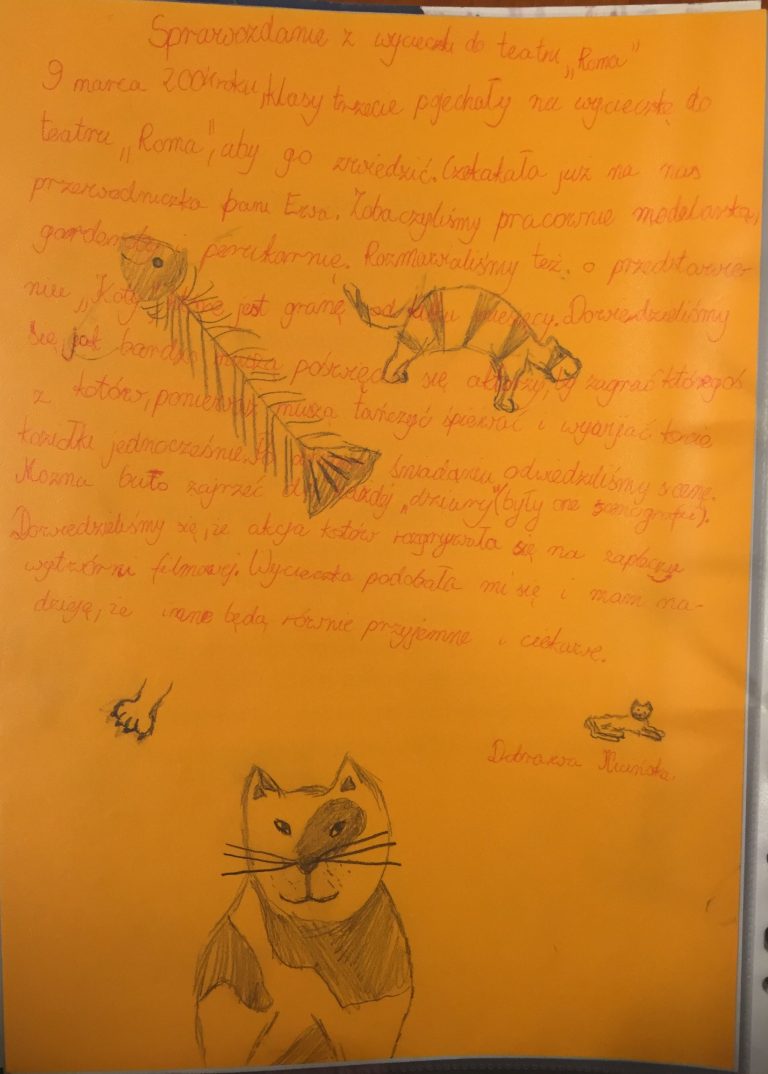 Sprawozdanie z wycieczki do teatru „Roma"
9 marca 2004 roku, klasy trzecie pojechały na wycieczkę do
teatru „Roma", aby go zwiedzić. Czekakała już na nas
przewodniczka pani Ewa. Zobaczyliśmy pracownie modelarską,
garderobę i perukarnię. Rozmawialiśmy też o przedstawie-
niu „Koty", które jest granę od kilku miesięcy. Dowiedzieliśmy
się, jak bardzo muszą poświęcać się aktorzy, by zagrać któregoś
z kotów, ponieważ muszą tańczyć śpiewać i wywijać kocie
koziołki jednocześnie. Po śniadaniu odwiedziliśmy scenę.
Mozna było zajrzeć do każdej „dziury" (były one scenografii).
Dowiedzieliśmy się, że akcja kotów rozgrywała się na zapleczu
wytwórni filmowej. Wycieczka podobała mi się i mam na-
dzieję, że inne będą równie przyjemne i ciekawe.
Dobrawa